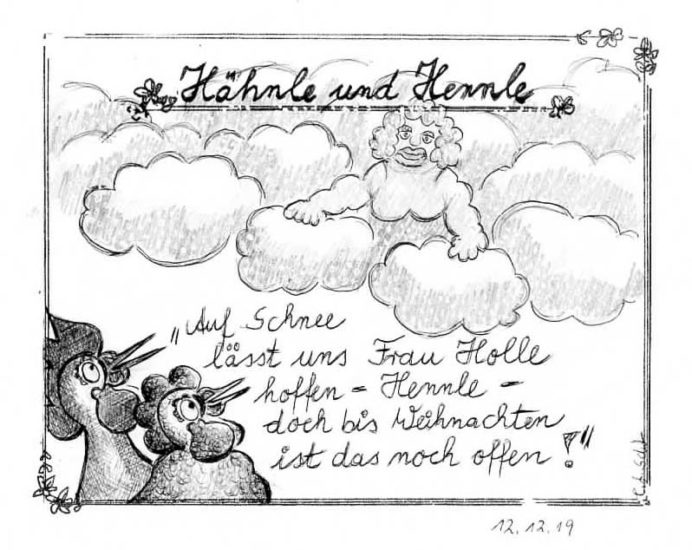 Hähnle und Hennle
"Auf Schnee
lässt uns Frau Holle
hoffen – Hennle –
doch bis Weihnachten
ist das noch offen!"
12.12.19